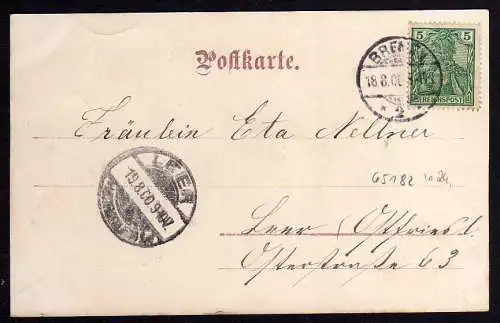 Postkarte.
5 5
REICHSPOST
BREMEN
18.8.00.
* 2
Fräulein Eta Nellner
LEER
19.8.00.9-10V.
65182
Leer Ostfriesl.
Osterstraße 63